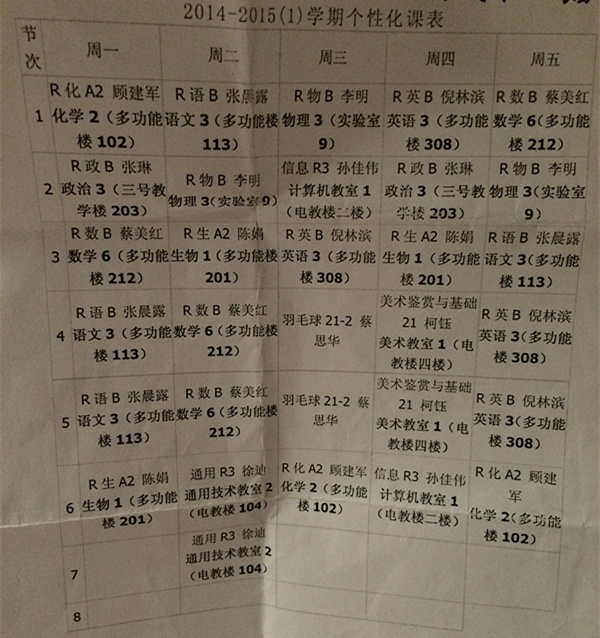 2014-2015(1)学期个性化课表
节次 周一 周二 周三 周四 周五
1
R 化 A2 顾建军
化学 2（多功能
楼 102）
R 语 B 张晨露
语文 3（多功能楼
113）
R 物 B 李明
物理 3（实验室
9）
R 英 B 倪林滨
英语 3（多功能
楼 308）
R 数 B 蔡美红
数学 6(多功能
楼 212）
2
R 政 B 张琳
政治 3（三号教
学楼 203）
R 物 B 李明
物理 3(实验室 9)
信息 R3 孙佳伟
计算机教室 1
（电教楼二楼）
R 政 B 张琳
政治 3（三号教
学楼 203）
R 物 B 李明
物理 3(实验室
9）
3
R 数 B 蔡美红
数学 6（多功能
楼 212）
R 生 A2 陈娟
生物 1（多功能楼
201）
R 英 B 倪林滨
英语 3（多功能
楼 308）
R 生 A2 陈娟
生物 1（多功能
楼 201）
R 语 B 张晨露
语文 3(多功能
楼 113）
4
R 语 B 张晨露
语文 3（多功能
楼 113）
R 数 B 蔡美红
数学 6（多功能楼
212）
羽毛球 21-2 蔡
思华
美术鉴赏与基础
21 柯钰
美术教室 1（电
教楼四楼）
R 英 B 倪林滨
英语 3(多功能
楼 308）
5
R 语 B 张晨露
语文 3（多功能
楼 113）
R 数 B 蔡美红
数学 6（多功能楼
212）
羽毛球 21-2 蔡
思华
美术鉴赏与基础
21 柯钰
美术教室 1（电
教楼四楼）
R 英 B 倪林滨
英语 3(多功能
楼 308）
6
R 生 A2 陈娟
生物 1（多功能
楼 201）
通用 R3 徐迪
通用技术教室 2
（电教楼 104）
R 化 A2 顾建军
化学 2（多功能
楼 102）
信息 R3 孙佳伟
计算机教室 1
（电教楼二楼）
R 化 A2 顾建
军
化学 2(多功能
楼 102）
7
通用 R3 徐迪
通用技术教室 2
（电教楼 104）
8